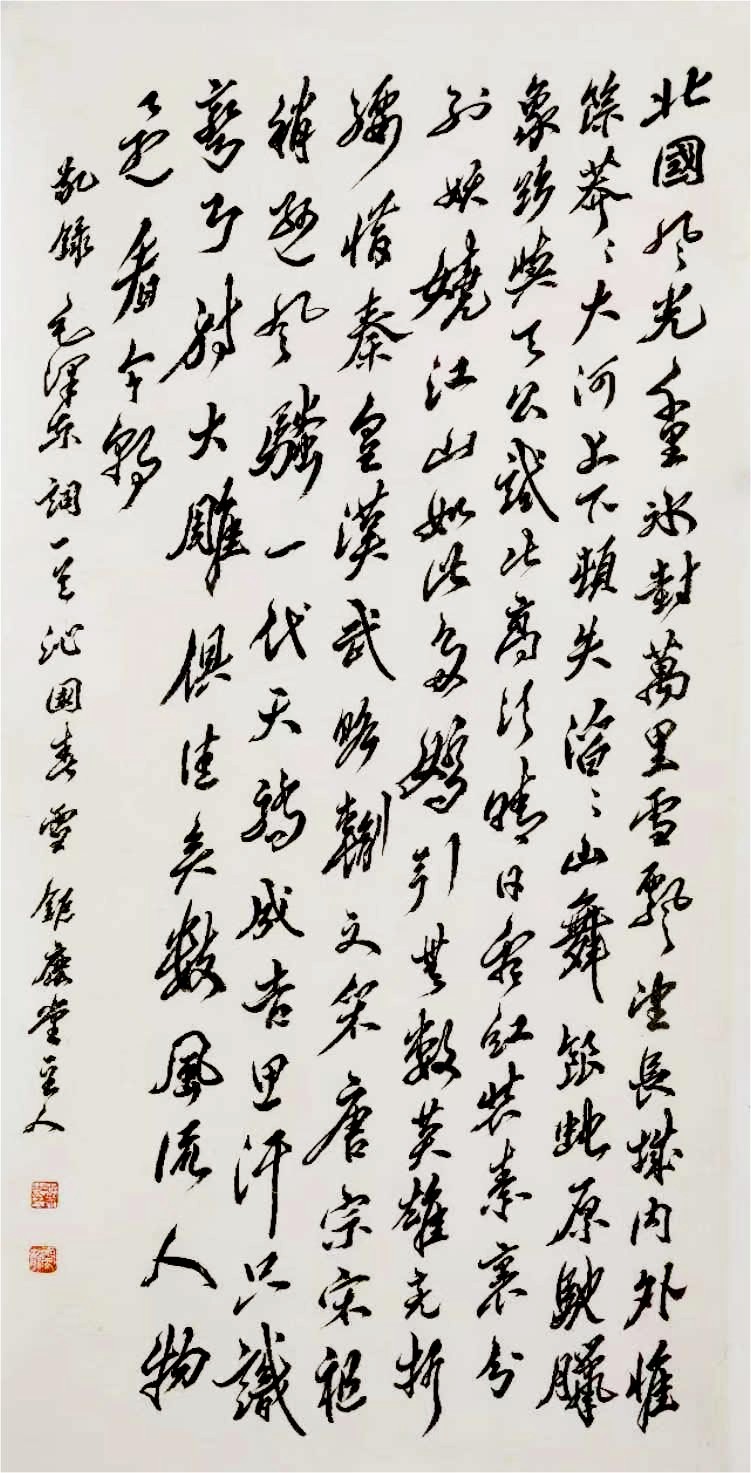 北國風光千里冰封萬里雪飄望長城内外惟
餘莽〻大河上下頓失滔〻山舞銀蛇原馳臘
象欲與天公試比高須晴日看紅裝素裹分
外妖嬈江山如此多嬌引無數英雄競折
腰惜秦皇漢武略輸文采唐宗宋祖
稍遜風騷一代天驕成吉思汗只識
彎弓射大雕俱往矣數風流人物
還看今朝
敬錄毛澤東詞一首沁園春雪 堂主人